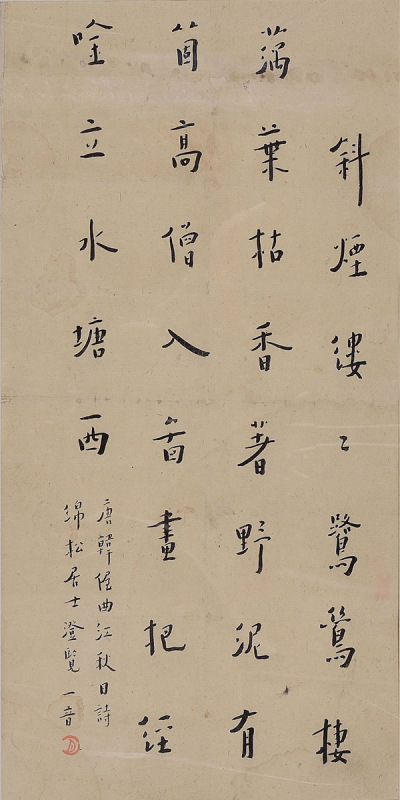 斜煙縷〻鷺鷥棲
蕅葉枯香著野泥有
箇高僧入啚畫把經
唫立水塘西
唐韓偓曲江秋日詩
綿松居士澄覽 一音